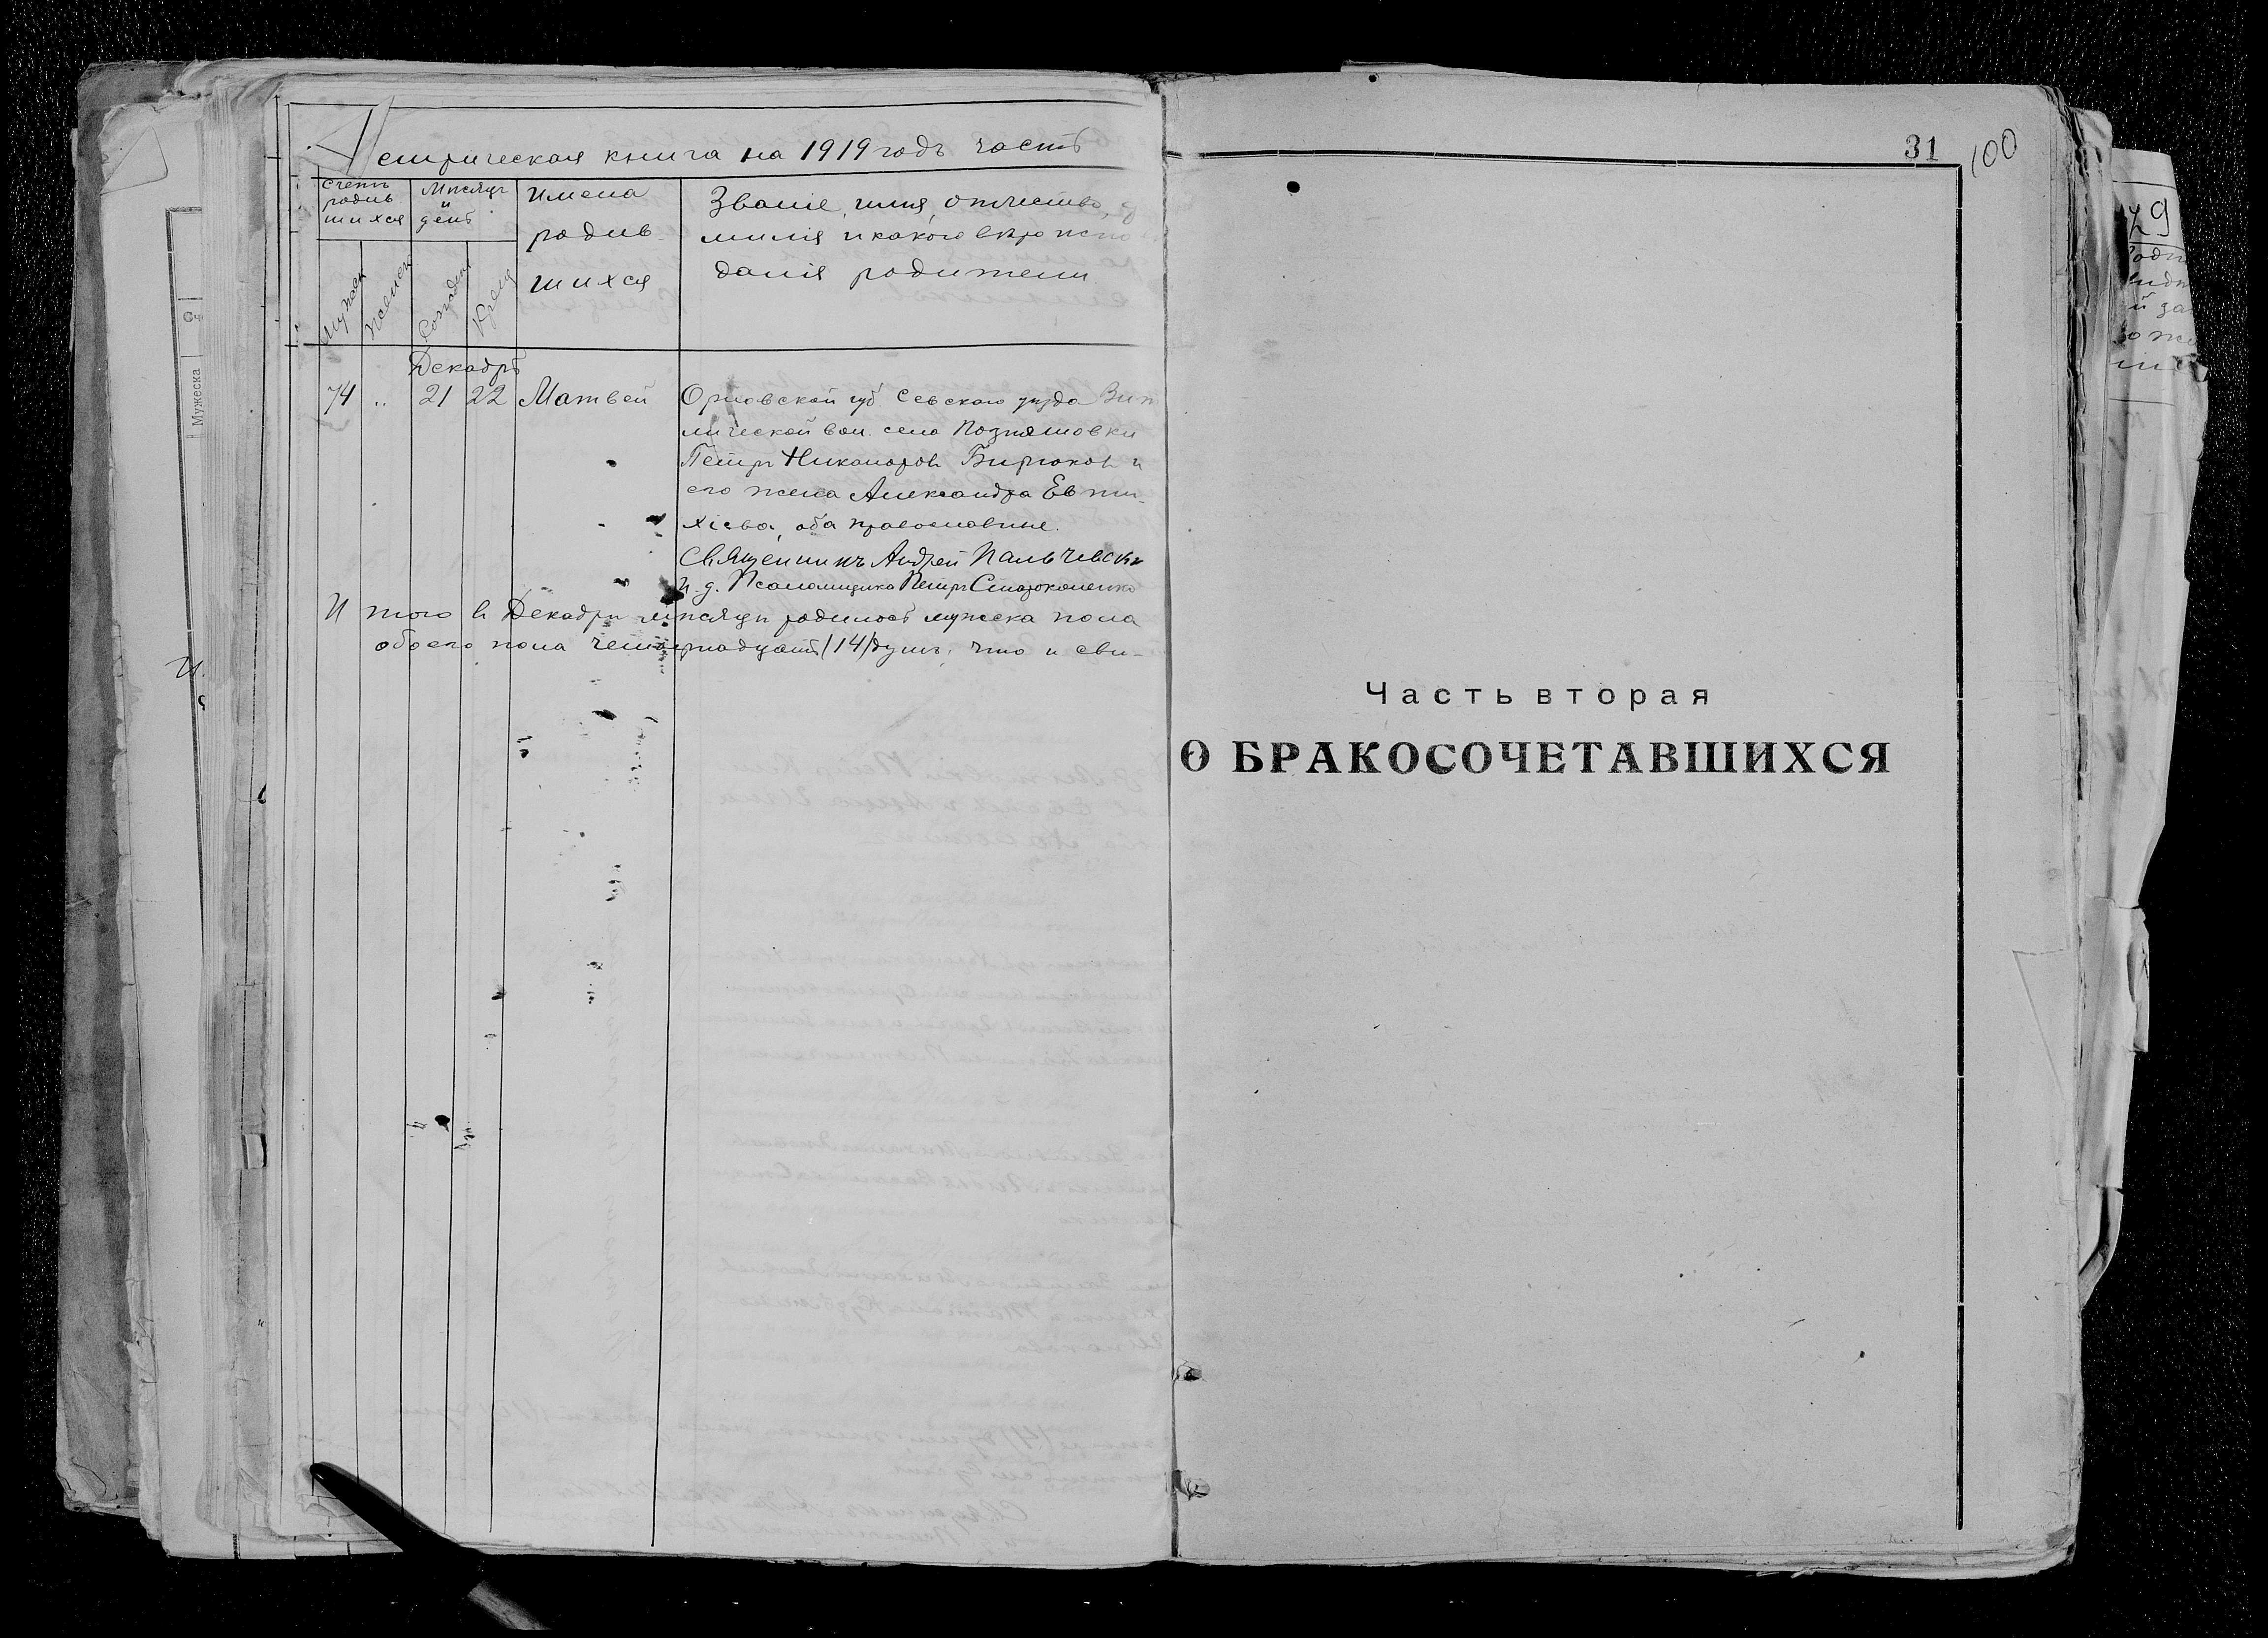 Метрическая книга на 1919 годъ часть
счетъ родив шихся
Мѣсяцъ и день
Имена родив шихся
Званіе, имя, отчество, ф
милія и какого вѣроиспо
данія родители
Мужеск
Женск
Рожден
Крещ
Декабрь
74 „ 21 22 Матвей
Орловской губ Севскаго уѣзда
лической вол. села Позняшовки
Петръ Никаноровъ Бирюковъ и
его жена Александра Евти-
хіева, оба православные.
Священникъ Андрей Пальчевски
И. д. Псаломщика Петръ Стороженко
Итого въ Декабрѣ мѣсяцѣ родилось мужска пола
обоего пола четырнадцать (14) душъ, что и сви-
Мужеска
31
100
Часть вторая
О БРАКОСОЧЕТАВШИХСЯ
29